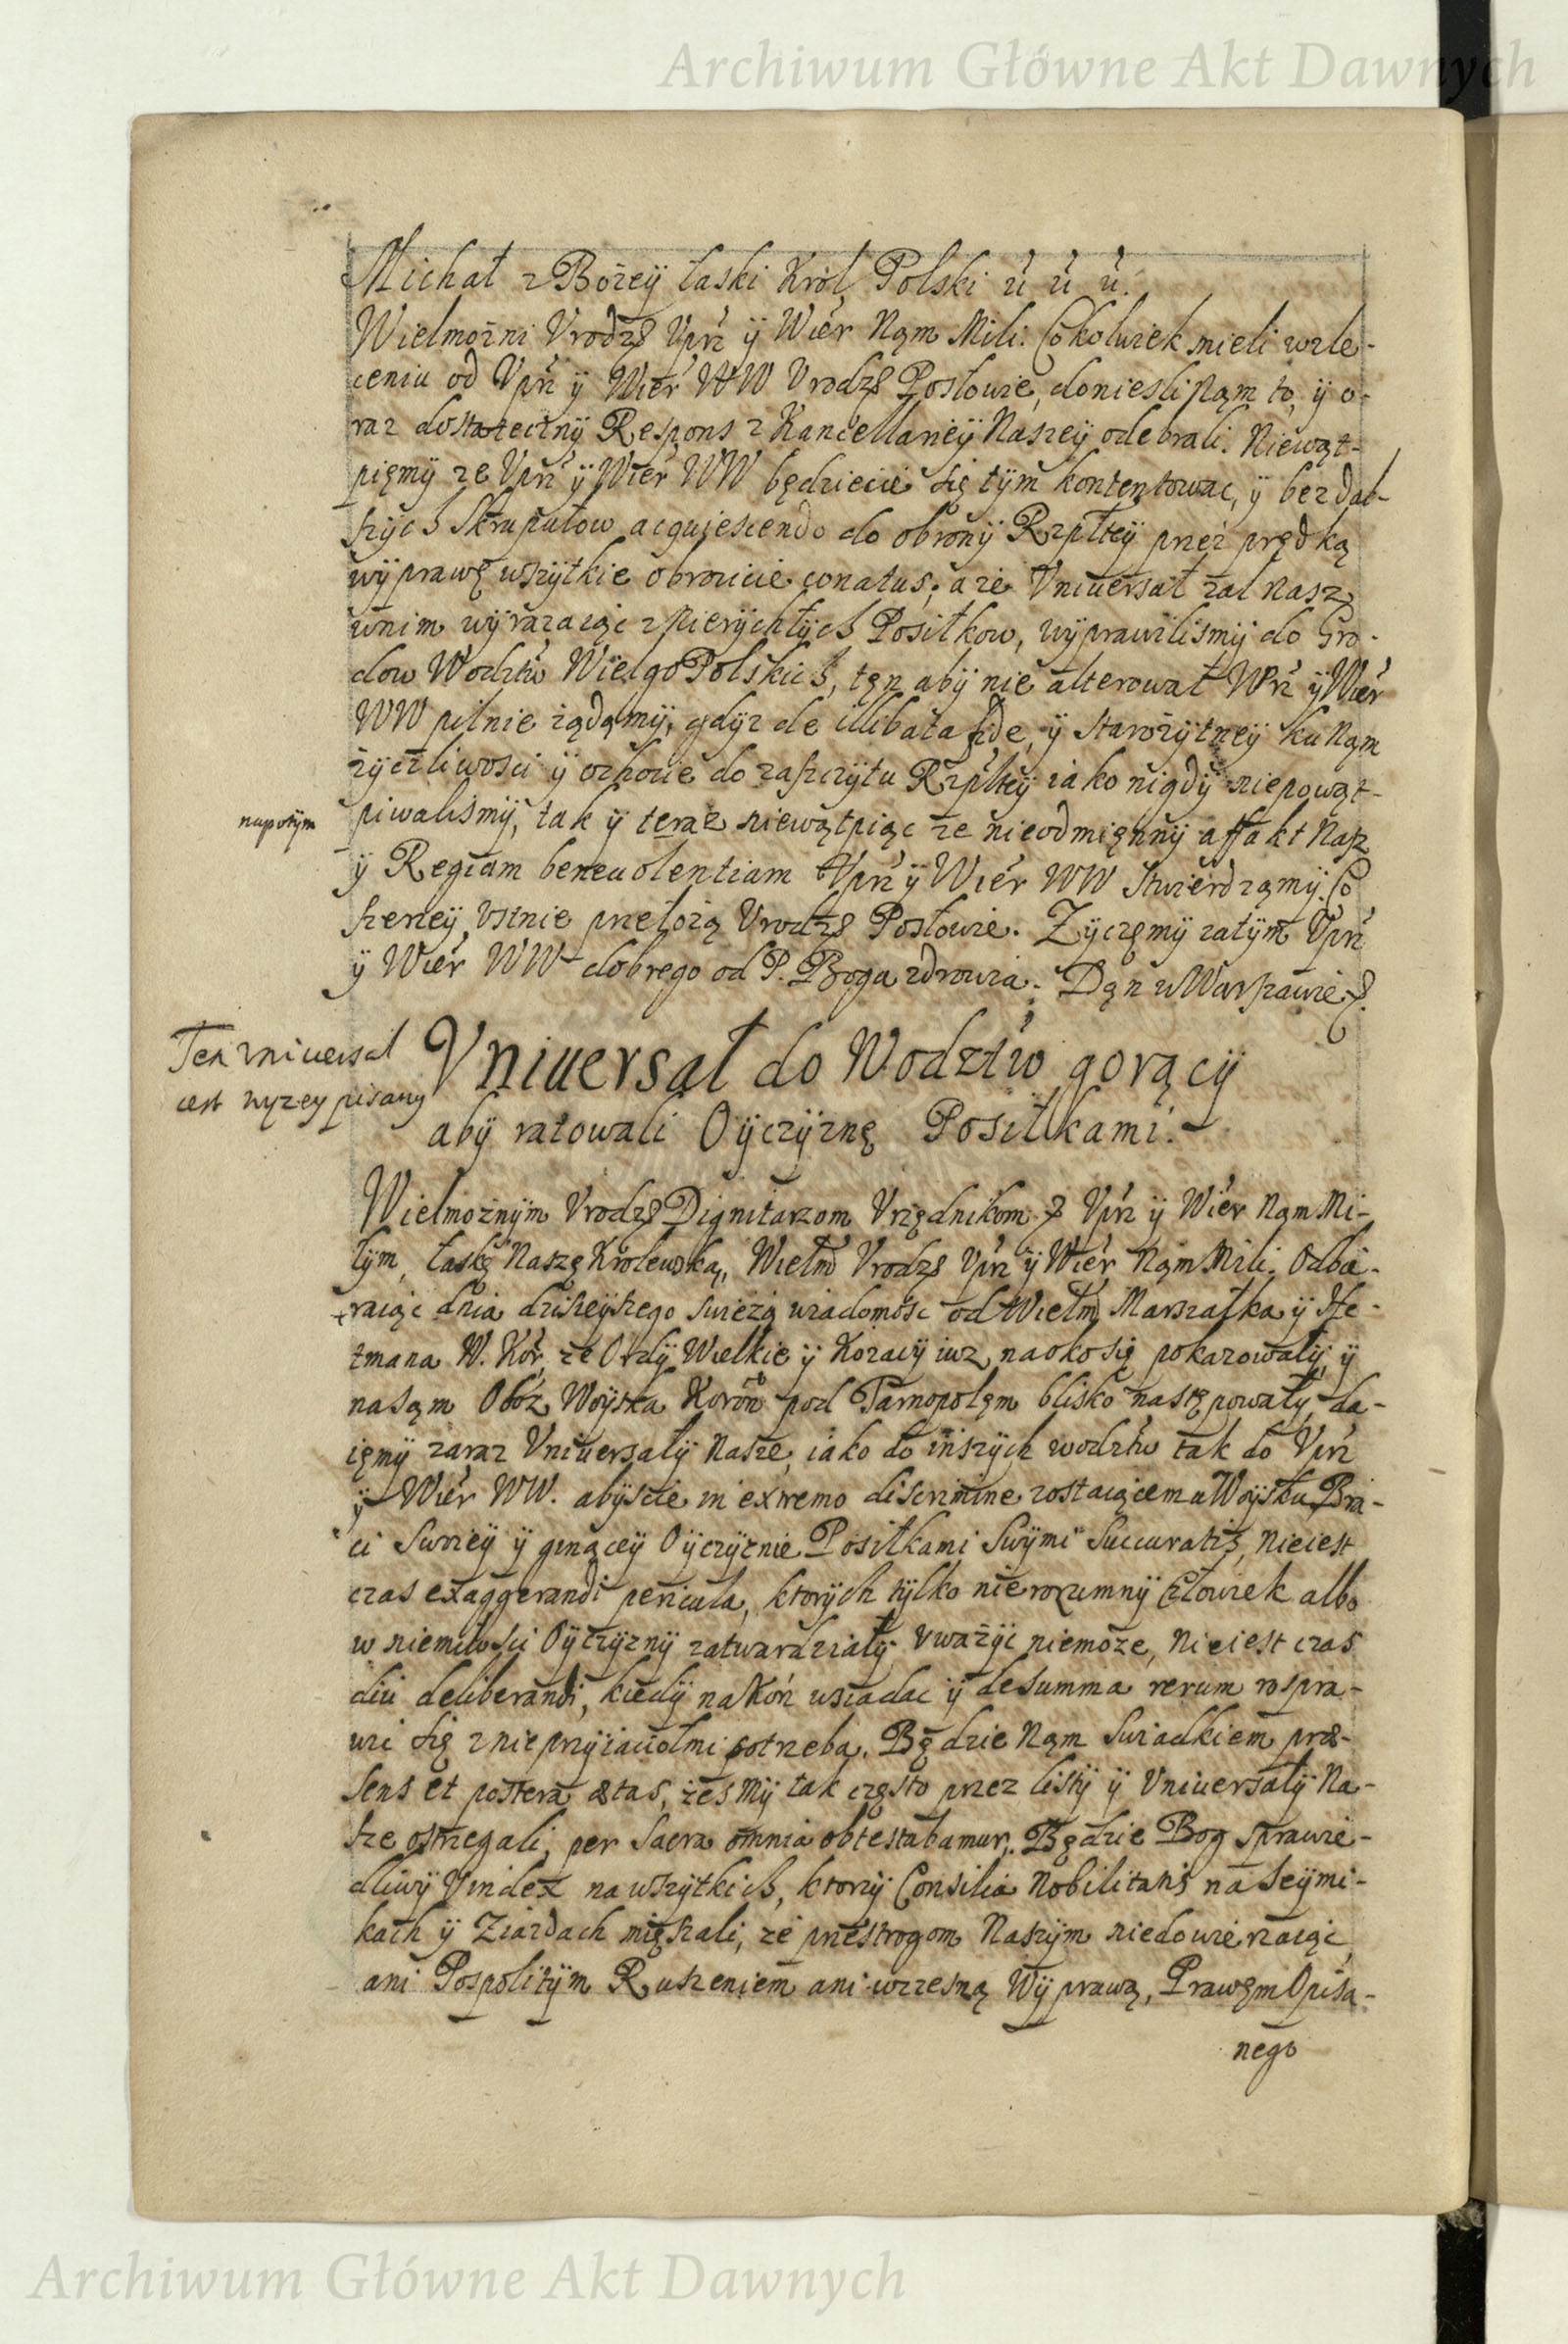 Archiwum Główne Akt Dawnych
Michał z Bożeÿ łaski Krol Polski ú ú ú.
Wielmożni Vrodz Vprz ÿ Wier Nąm Mili. Cokolwiek mieli wzle-
ceniu od Vprz ÿ Wier WW Vrodz Posłowie, donieśli Nąm to, ÿ o-
raz dostateczny Respons z Kancellarieÿ Naszeÿ odebrali. Niewąt-
pięmÿ ze Vprz ÿ Wier WW będziecie się tÿm kontentowac, ÿ bez dal-
szÿch Skrupułow acquiescendo do obronÿ Rzpłteÿ przez prędką
wÿprawę wszÿtkie obrocicie conatus; a ze Vniuersał zal Nasz
wnim wÿrazaiąc z Pierÿchłÿch Posiłkow, wÿprawilismÿ do Gro-
dow Wodztw WielgoPolskich, tęn abÿ nie alterował Vprz ÿ Wier
WW pilnie żądąmÿ, gdÿz de illibata fide, ÿ starożÿtneÿ ku Nąm
życzliwości ÿ ochocie do zaszczÿtu Rzpłteÿ iako nigdÿ niepowąt-
napotÿm piwalismÿ, tak ÿ teraz niewątpiąc ze nieodmięnnÿ affekt Nasz
ÿ Regiam beneuolentiam Vprz ÿ Wier WW Stwierdzamÿ. Co
szerzeÿ, Vstnie przełożą Vrodz Posłowie. Zÿczęmÿ zatÿm Vprz
ÿ Wier WW dobrego od P. Boga zdrowia. Dąn w Warszawie
Ten vniuersał
iest wyzey pisany
Vniuersał do Wodztw gorącÿ
abÿ ratowali Oÿczÿznę Posiłkami.
Wielmożnÿm Vrodz Dignitarzom Vrzędnikom Vprz ÿ Wier Nąm Mi-
łÿm, łaskę Naszę Krolewską, Wielm Vrodz Vprz ÿ Wier Nąm Mili. Odbie-
raiąc dnia dziszeÿszego swieżą wiadomosc od Wielm Marszałka ÿ He-
tmana W. Kor, ze Ordÿ Wielkie ÿ Kozacÿ iuz naoko się pokazowałÿ, ÿ
nasąm Oboz Woÿska Koron pod Tarnopolęm blisko następowałÿ, da-
ięmÿ zaraz Vniuersałÿ Nasze, iako do inszÿch wodztw tak do Vprz
ÿ Wier WW. abÿscie in extremo discrimine zostaiącemu Woÿsku Bra-
ci Swoieÿ ÿ ginąceÿ Oÿczÿznie Posiłkami Swÿmi Succuratis, Nieiest
czas exaggerandi pericula, ktorÿch tÿlko nierozumnÿ Człowiek albo
w niemiłosci Oÿczÿznÿ zatwardziałÿ vważÿc niemoże, Nieiest czas
diu deliberandi, kiedÿ na Koń wsiadac ÿ desumma rerum rospra-
wi się z nieprzÿiaciołmi potrzeba. Będzie Nąm Swiadkiem præ-
sens et postera ætas, żesmÿ tak często przez listÿ ÿ Vniuersałÿ Na-
sze ostrzegali, per Sacra omnia obtestabamur. Będzie Bog sprawie-
dliwÿ Vindex na wszÿtkich, ktorzÿ Consilia Nobilitatis na Seÿmi-
kach ÿ Ziazdach mięszali, ze przestrogom Naszÿm niedowierzaiąc,
ani Pospolitÿm Ruszeniem ani wczesną Wÿprawą, Prawęm Opisa-
nego
Archiwum Główne Akt Dawnych